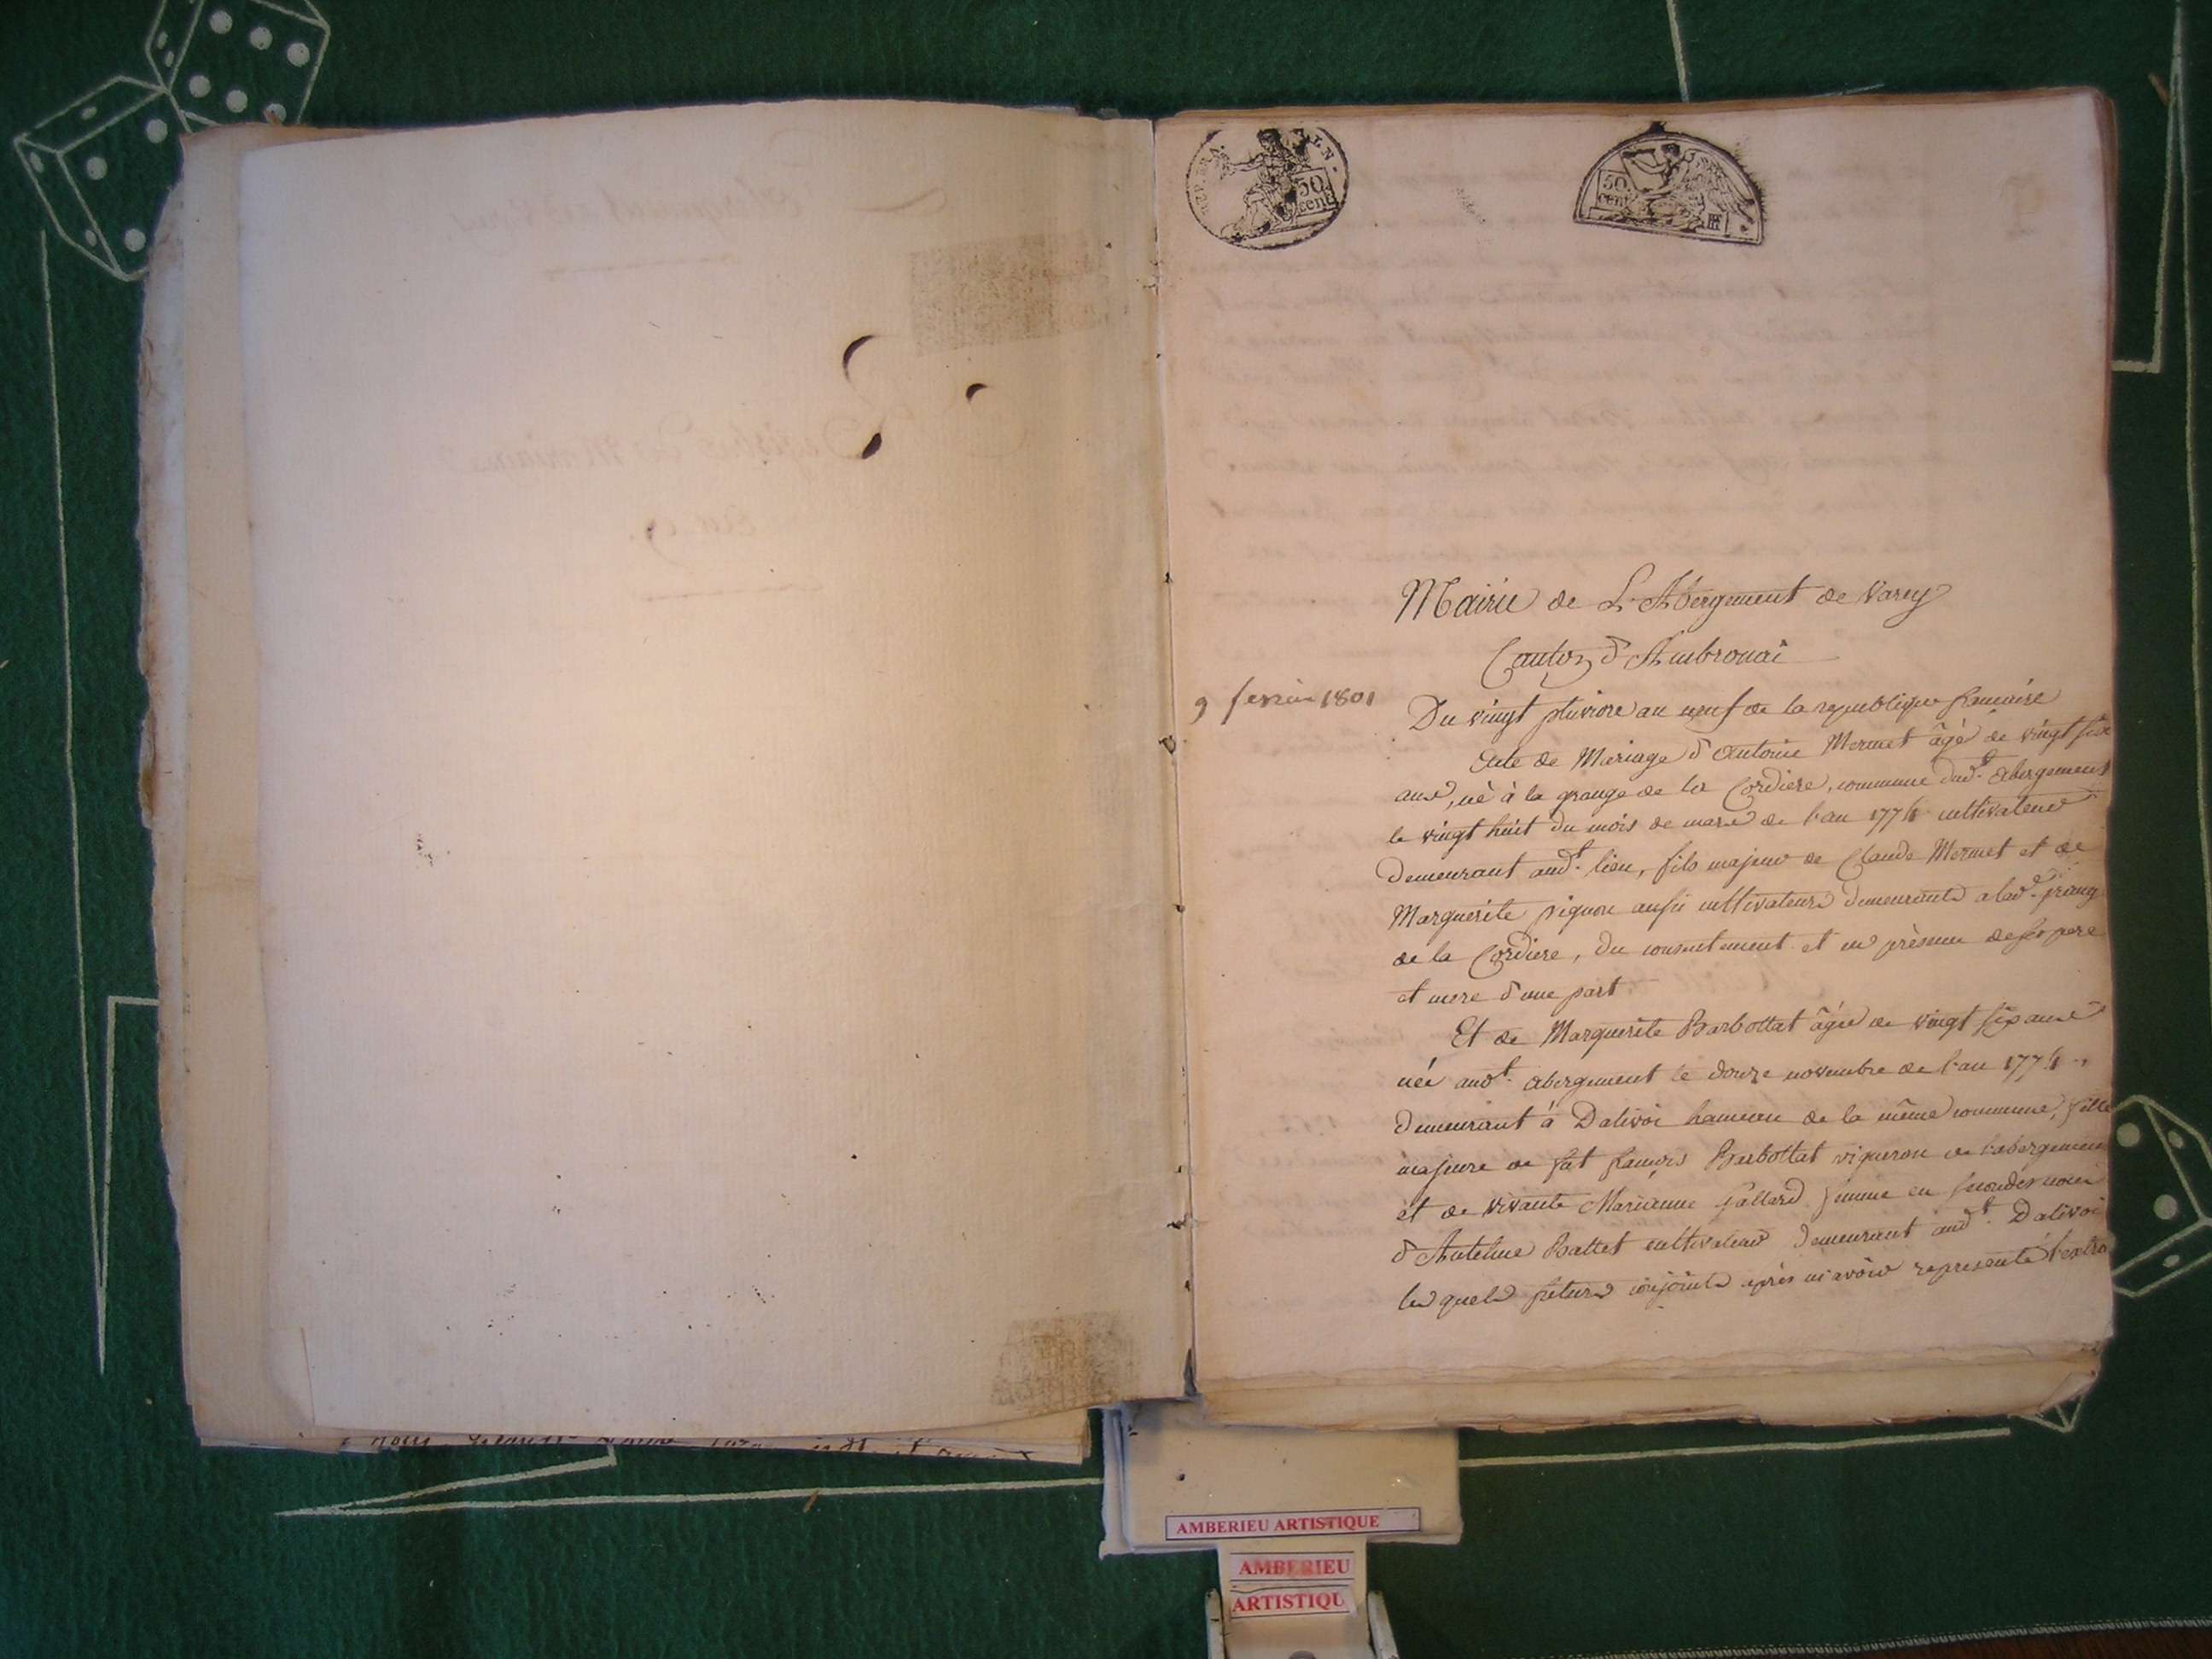 REP. FRA.
50
cent
50
cent
RF
Mairie de L'Abergement de Varey
Canton d'Ambronai
9 fevrier 1801
Du vingt pluviose an neuf de la republique francaise
Acte de Mariage d'Antoine Mermet âgé de vingt six
ans, né à la grange de la Cordiere, commune dudt. abergement
le vingt huit du mois de mars de l'an 1774 cultivateur
demeurant audt. lieu, fils majeur de Claude Mermet et de
Marguerite vignon aussi cultivateurs demeurants a lade. grang
de la Cordiere, du consentement et en présence de ses pere
et mere d'une part
Et de Marguerite Barbottat âgée de vingt six ans
née audt. abergement le douze novembre de l'an 1774,
demeurant à Dalivoi hameau de la même commune, fille
majeure de fut françois Barbottat vigneron de l'abergement
et de vivante Marianne femme en
d'Antelme Battet cultivateur demeurant audt. Dalivoi
les quels futurs conjoints après m'avoir representé l'extra
AMBERIEU ARTISTIQUE
AMBERIEU
ARTISTIQU